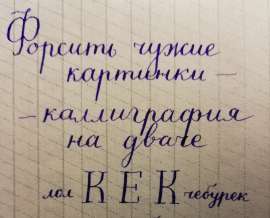 Форсить чужие
картинки —
— каллиграфия
на дваче
лол КЕК чебурек